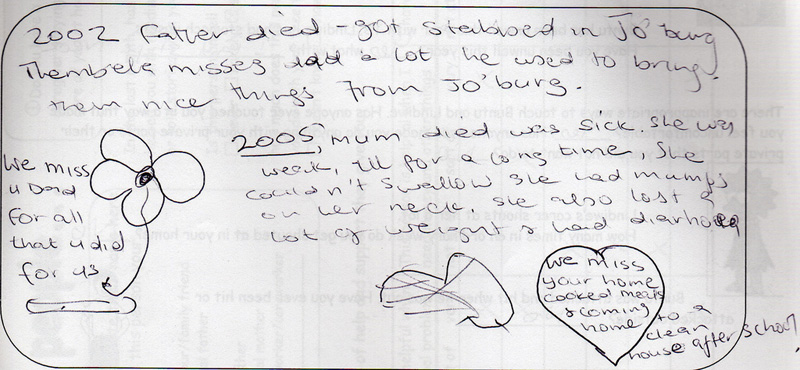 2002 Father died - got stabbed in Jo'burg
Thembela misses dad a lot he used to bring
them nice things from Jo'burg.
2005, Mum died was sick she was
weak, ill for a long time, she
couldn't swallow she had mumps
on her neck, she also lost a
lot of weight & had diarhoea
We miss
u Dad
for all
that u did
for us
We miss
your home
cooked meals
& coming
home to a
clean
house after school